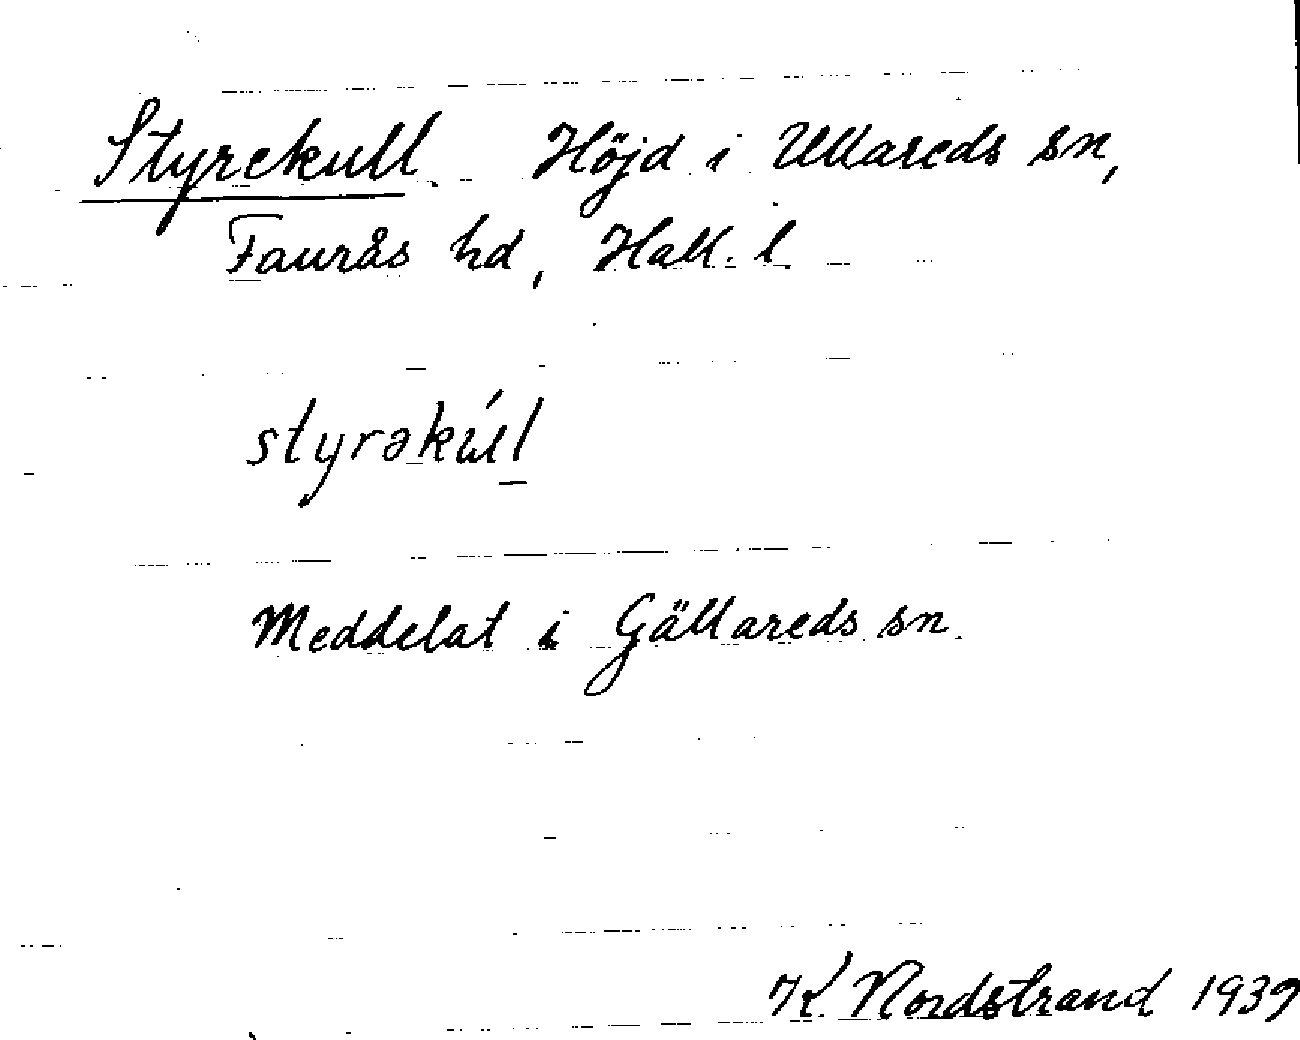 Styrekull Höjd i Ullareds sn,
Faurås hd, Hall. l.
styrəkúl
Meddelat i Gällareds sn.
K Nordstrand 1939